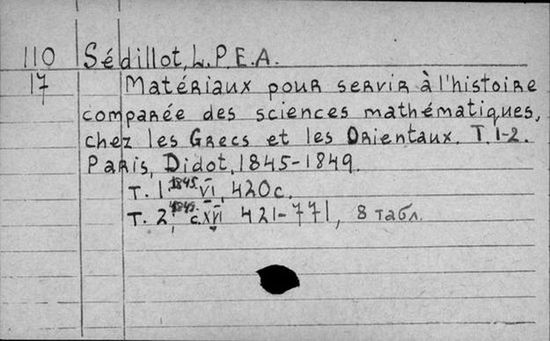 110 Sédillot, L.P.E.A.
17 Matériaux pour servir à l'histoire
comparée des sciences mathématiques,
chez les Grecs et les Orientaux. T. 1-2.
Paris, Didot, 1845-1849.
T. 1. 1845. VI, 420 с.
T. 2, 1849. с. XVI 421-771, 8 табл.